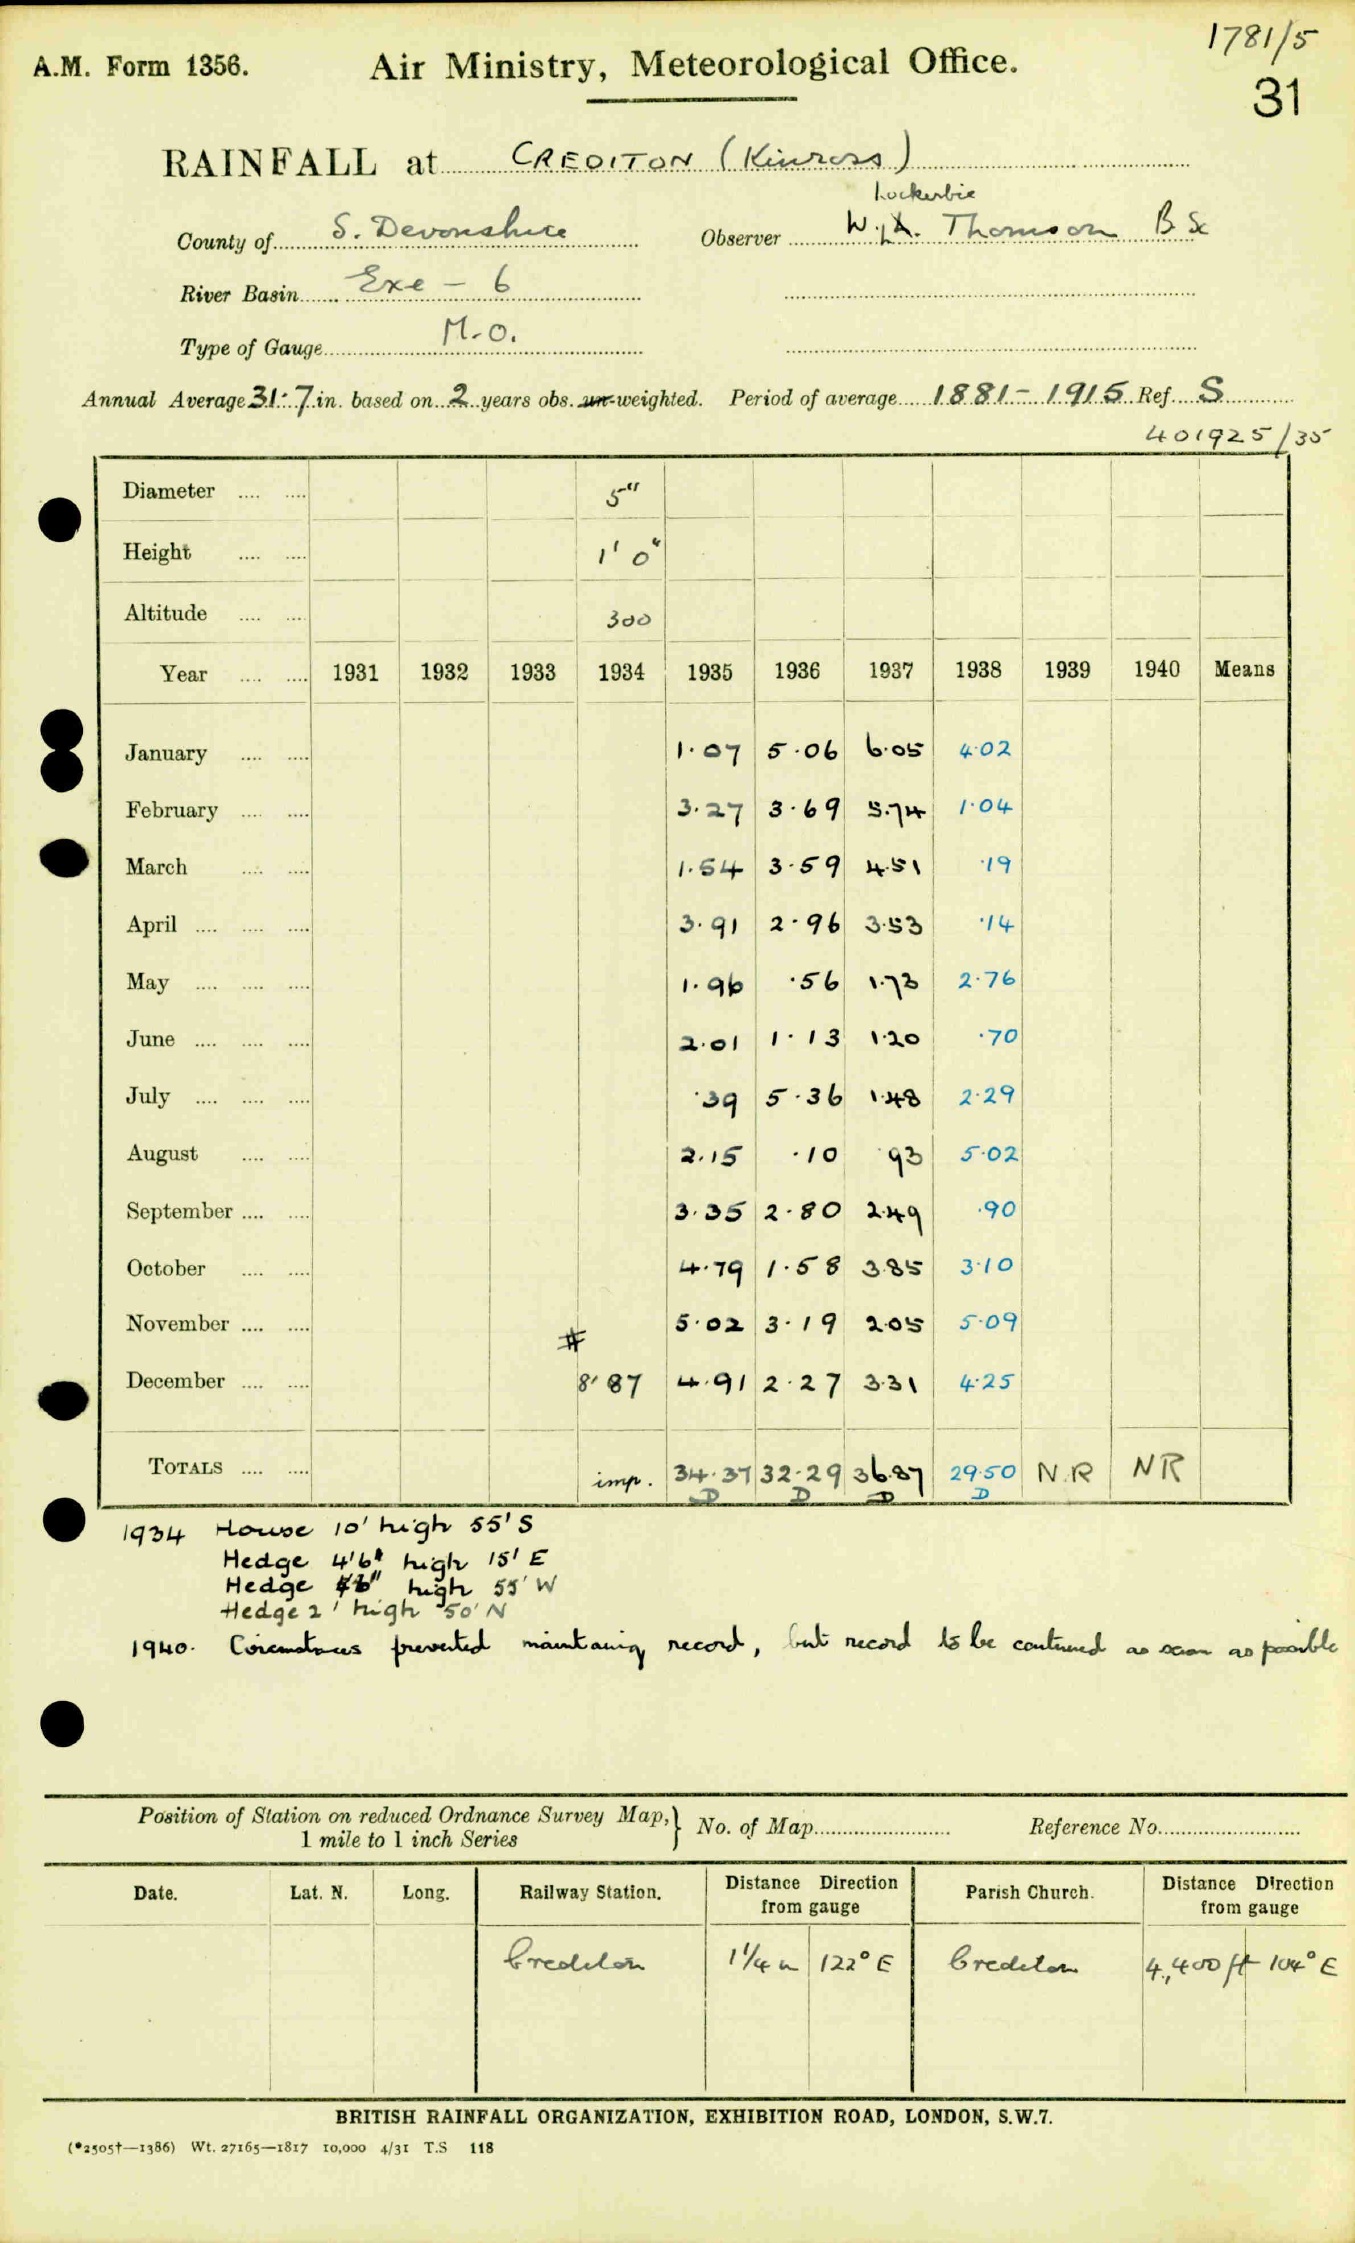 1781/5
A.M. Form 1356. Air Ministry, Meteorological Office.
31
RAINFALL at CREDITON (Kinross)
Lockerbie
County of S. Devonshire Observer W. A. Thomson B Sc
River Basin Exe - 6
Type of Gauge M.O.
Annual Average 31.7 in. based on 2 years obs. un-weighted. Period of average 1881 - 1915 Ref S
401925/35
Diameter 5"
Height 1' 0"
Altitude 300
Year 1931 1932 1933 1934 1935 1936 1937 1938 1939 1940 Means
January 1.07 5.06 6.05 4.02
February 3.27 3.69 5.74 1.04
March 1.54 3.59 4.51 .19
April 3.91 2.96 3.53 .14
May 1.96 .56 1.73 2.76
June 2.01 1.13 1.20 .70
July .39 5.36 1.48 2.29
August 2.15 .10 .93 5.02
September 3.35 2.80 2.49 .90
October 4.79 1.58 3.85 3.10
November 5.02 3.19 2.05 5.09
#
December 8.87 4.91 2.27 3.31 4.25
TOTALS imp. 34.37 32.29 36.87 29.50 N.R NR
D D D D
1934 House 10' high 55' S
Hedge 4'6" high 15' E
Hedge 6" high 55' W
Hedge 2' high 50' N
1940. Circumstances prevented maintaining record, but record to be continued as soon as possible
Position of Station on reduced Ordnance Survey Map, } No. of Map Reference No.
1 mile to 1 inch Series
Date. Lat. N. Long. Railway Station. Distance Direction from gauge Parish Church. Distance Direction from gauge
Crediton 1 1/4 m 122° E Crediton 4,400 ft 104° E
BRITISH RAINFALL ORGANIZATION, EXHIBITION ROAD, LONDON, S.W.7.
(*2505†—1386) Wt. 27165—1817 10,000 4/31 T.S 118